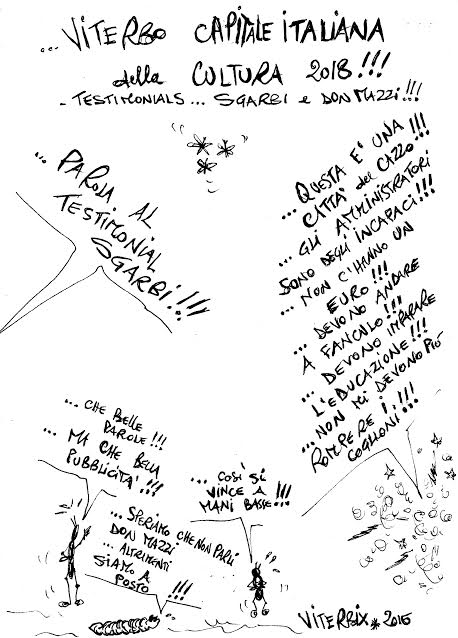 ... VITERBO CAPITALE ITALIANA
della CULTURA 2018!!!
- TESTIMONIALS... SGARBI e DON MAZZI!!!
... PAROLA AL
TESTIMONIAL
SGARBI!!!
... QUESTA E' UNA
CITTÀ del CAZZO!!!
... GLI AMMINISTRATORI
SONO DEGLI INCAPACI!!!
... NON C'HANNO UN
EURO!!!
... DEVONO ANDARE
A FANCULO!!!
... DEVONO IMPARARE
L'EDUCAZIONE!!!
... NON MI DEVONO PIÙ
ROMPERE I
COGLIONI!!!
... CHE BELLE
PAROLE!!!
... MA CHE BELLA
PUBBLICITA'!!!
... COSÌ SI
VINCE A
MANI BASSE!!!
... SPERIAMO CHE NON PARLI
DON MAZZI
... ALTRIMENTI
SIAMO A
POSTO!!!
VITERBIX 2016